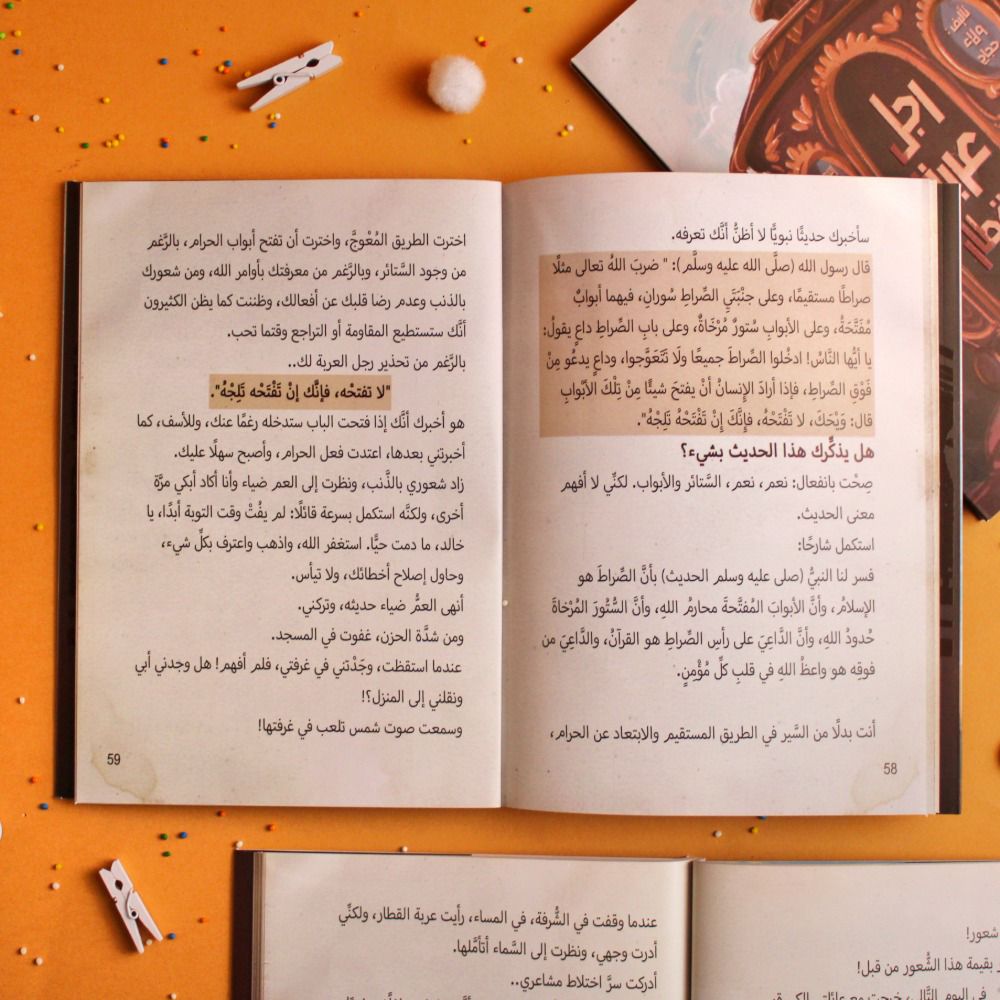 سأخبرك حديثًا نبويًّا لا أظنُّ أنَّك تعرفه.
قال رسول الله (صلَّى الله عليه وسلَّم): " ضربَ اللهُ تعالى مثلًا
صراطًا مستقيمًا، وعلى جنْبَتَيِ الصِّراطِ سُورانِ، فيهما أبوابٌ
مُفَتَّحَةٌ، وعلى الأبوابِ سُتورٌ مُرْخَاةٌ، وعلى بابِ الصِّراطِ داعٍ يقولُ:
يا أيُّها النَّاسُ! ادخُلوا الصِّراطَ جميعًا ولَا تَتَعَوَّجوا، وداعٍ يدعُو مِنْ
فَوْقِ الصِّراطِ، فإذا أرادَ الإِنسانُ أنْ يفتحَ شيئًا مِنْ تِلْكَ الأبْوابِ
قال: وَيْحَكَ، لا تَفْتَحْهُ، فإِنَّكَ إِنْ تَفْتَحْهُ تَلِجْهُ".
هل يذكِّرك هذا الحديث بشيء؟
صِحْت بانفعال: نعم، نعم، السَّتائر والأبواب. لكنّي لا أفهم
معنى الحديث.
استكمل شارحًا:
فسر لنا النبيُّ (صلى عليه وسلم الحديث) بأنَّ الصِّراطَ هو
الإسلامُ، وأنَّ الأبوابَ المُفتَّحةَ محارمُ اللهِ، وأنَّ السُّتُورَ المُرْخاةَ
حُدودُ اللهِ، وأنَّ الدَّاعِيَ على رأسِ الصِّراطِ هو القرآنُ، والدَّاعِيَ من
فوقِه هو واعظُ اللهِ في قلبِ كلِّ مُؤْمنٍ.
أنت بدلًا من السَّير في الطريق المستقيم والابتعاد عن الحرام،
58
اخترت الطريق المُعْوجَّ، واخترت أن تفتح أبواب الحرام، بالرَّغم
من وجود السَّتائر، وبالرَّغم من معرفتك بأوامر الله، ومن شعورك
بالذنب وعدم رضا قلبك عن أفعالك، وظننت كما يظن الكثيرون
أنَّك ستستطيع المقاومة أو التراجع وقتما تحب.
بالرَّغم من تحذير رجل العربة لك..
"لا تفتحْه، فإنَّك إنْ تَفْتَحْه تَلِجْهُ".
هو أخبرك أنَّك إذا فتحت الباب ستدخله رغمًا عنك، وللأسف، كما
أخبرتني بعدها، اعتدت فعل الحرام، وأصبح سهلًا عليك.
زاد شعوري بالذَّنب، ونظرت إلى العم ضياء وأنا أكاد أبكي مرَّة
أخرى، ولكنَّه استكمل بسرعة قائلًا: لم يفُتْ وقت التوبة أبدًا، يا
خالد، ما دمت حيًّا. استغفر الله، واذهب واعترف بكلِّ شيء،
وحاول إصلاح أخطائك، ولا تيأس.
أنهى العمُّ ضياء حديثه، وتركني.
ومن شدَّة الحزن، غفوت في المسجد.
عندما استقظت، وجَدْتني في غرفتي، فلم أفهم! هل وجدني أبي
ونقلني إلى المنزل؟!
وسمعت صوت شمس تلعب في غرفتها!
59
شعور!
بقيمة هذا الشُّعور من قبل!
عندما وقفت في الشُّرفة، في المساء، رأيت عربة القطار، ولكنِّي
أدرت وجهي، ونظرت إلى السَّماء أتأمَّلها.
أدركت سرَّ اختلاط مشاعري..